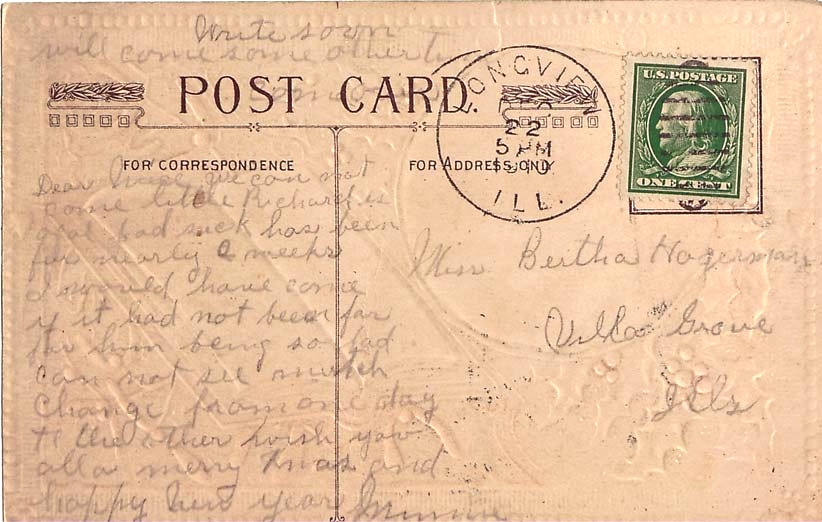 Write soon
will come some other
POST CARD.
FOR CORRESPONDENCE
FOR ADDRESS ONLY
LONGVIEW
22
5 PM
1910
ILL.
U.S. POSTAGE
ONE CENT
Dear we can not
come little Richard is
bad sick has been
for nearly 2 weeks
I would have come
if it had not been for
for him being so bad
can not see much
change from one day
to the other wish you
all a merry Xmas and
happy New year Minnie
Miss Bertha Hagerman
Villa Grove
Ills